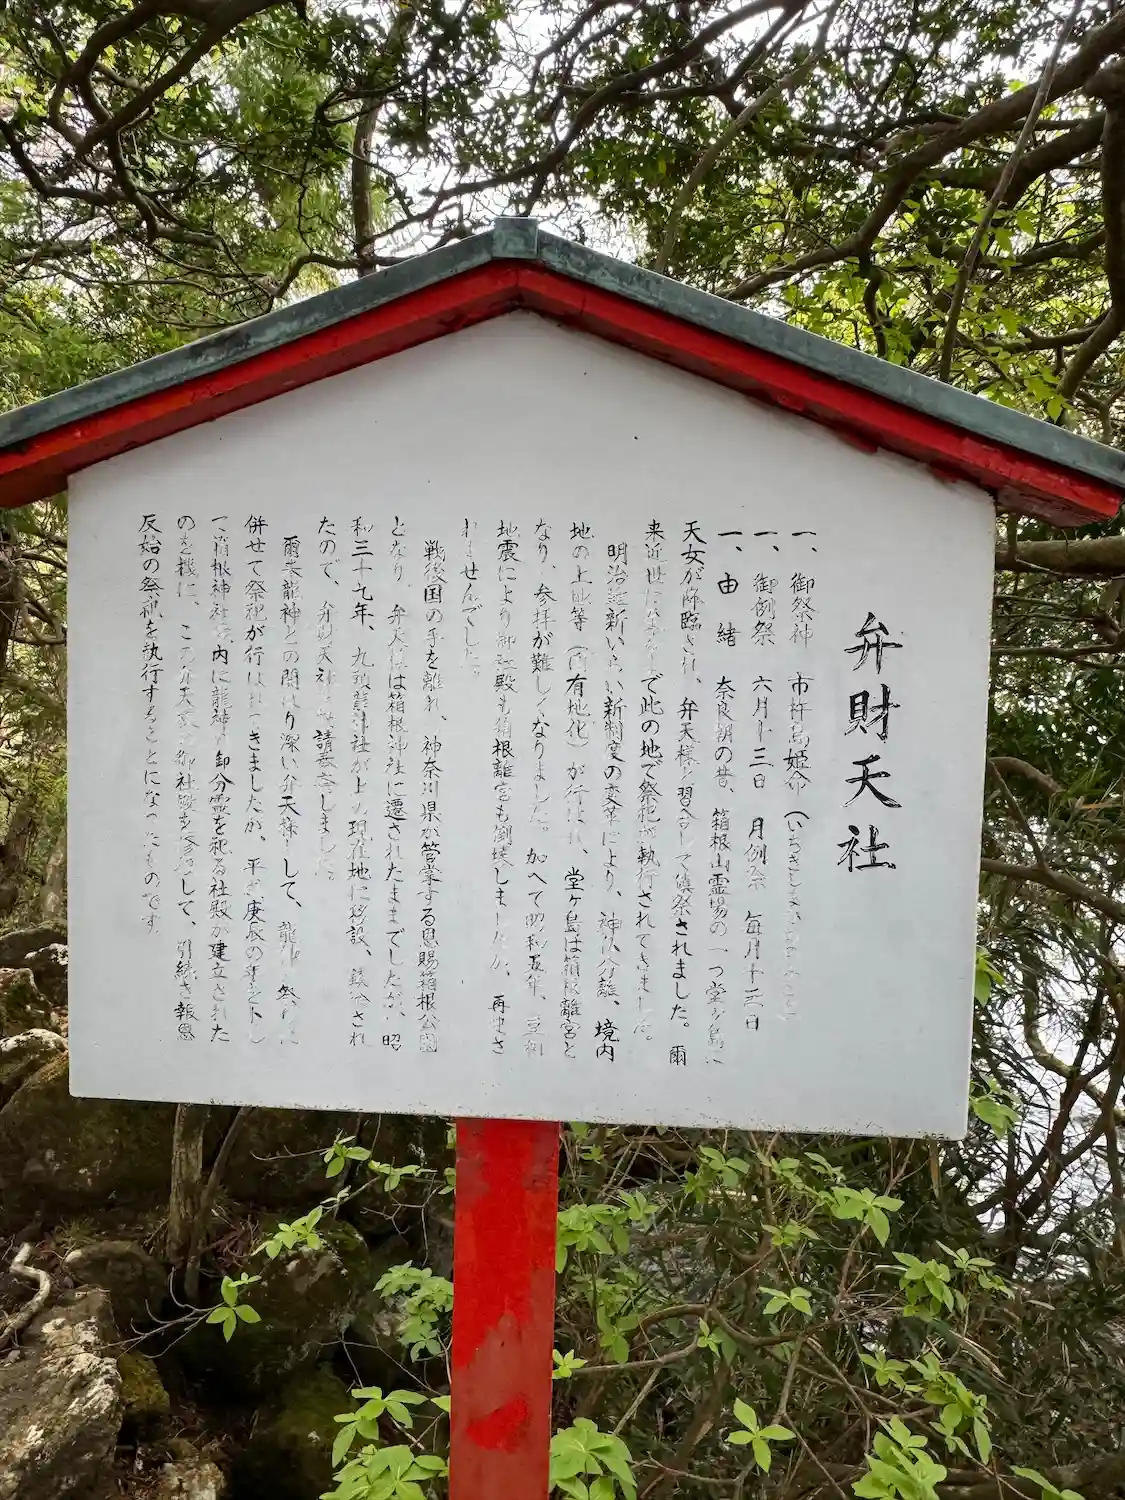 弁財天社
一、御祭神 市杵島姫命
一、御例祭 六月十三日 月例祭 毎月十三日
一、由緒 奈良朝の昔、箱根山霊場の一つ堂ヶ島に
天女が降臨され、弁天様と習合して鎮祭されました。爾
来近世に で此の地で祭祀が執行されてきました。
明治維新 い新制度の変革により、神仏分離、境内
地の上地等（官有地化）が行はれ、堂ヶ島は箱根離宮と
なり、参拝が難しくなりました。加へて昭和五年、豆相
地震により御社殿も箱根離宮も倒壊しましたが、再建さ
れませんでした。
戦後国の手を離れ、神奈川県が管掌する恩賜箱根公園
となり、弁天様は箱根神社に遷されたままでしたが、昭
和三十九年、九頭龍神社が 現在地に移設、鎮 され
たので、弁財天社 請 しました。
爾来龍神との関はり深い弁天様として、龍神 祭
併せて祭祀が行はれてきましたが、平成庚辰の年を卜し
て箱根神社境内に龍神の御分霊を祀る社殿が建立された
のを機に、この弁天 御社殿を して、引続き報恩
反始の祭祀を執行することになったものです。